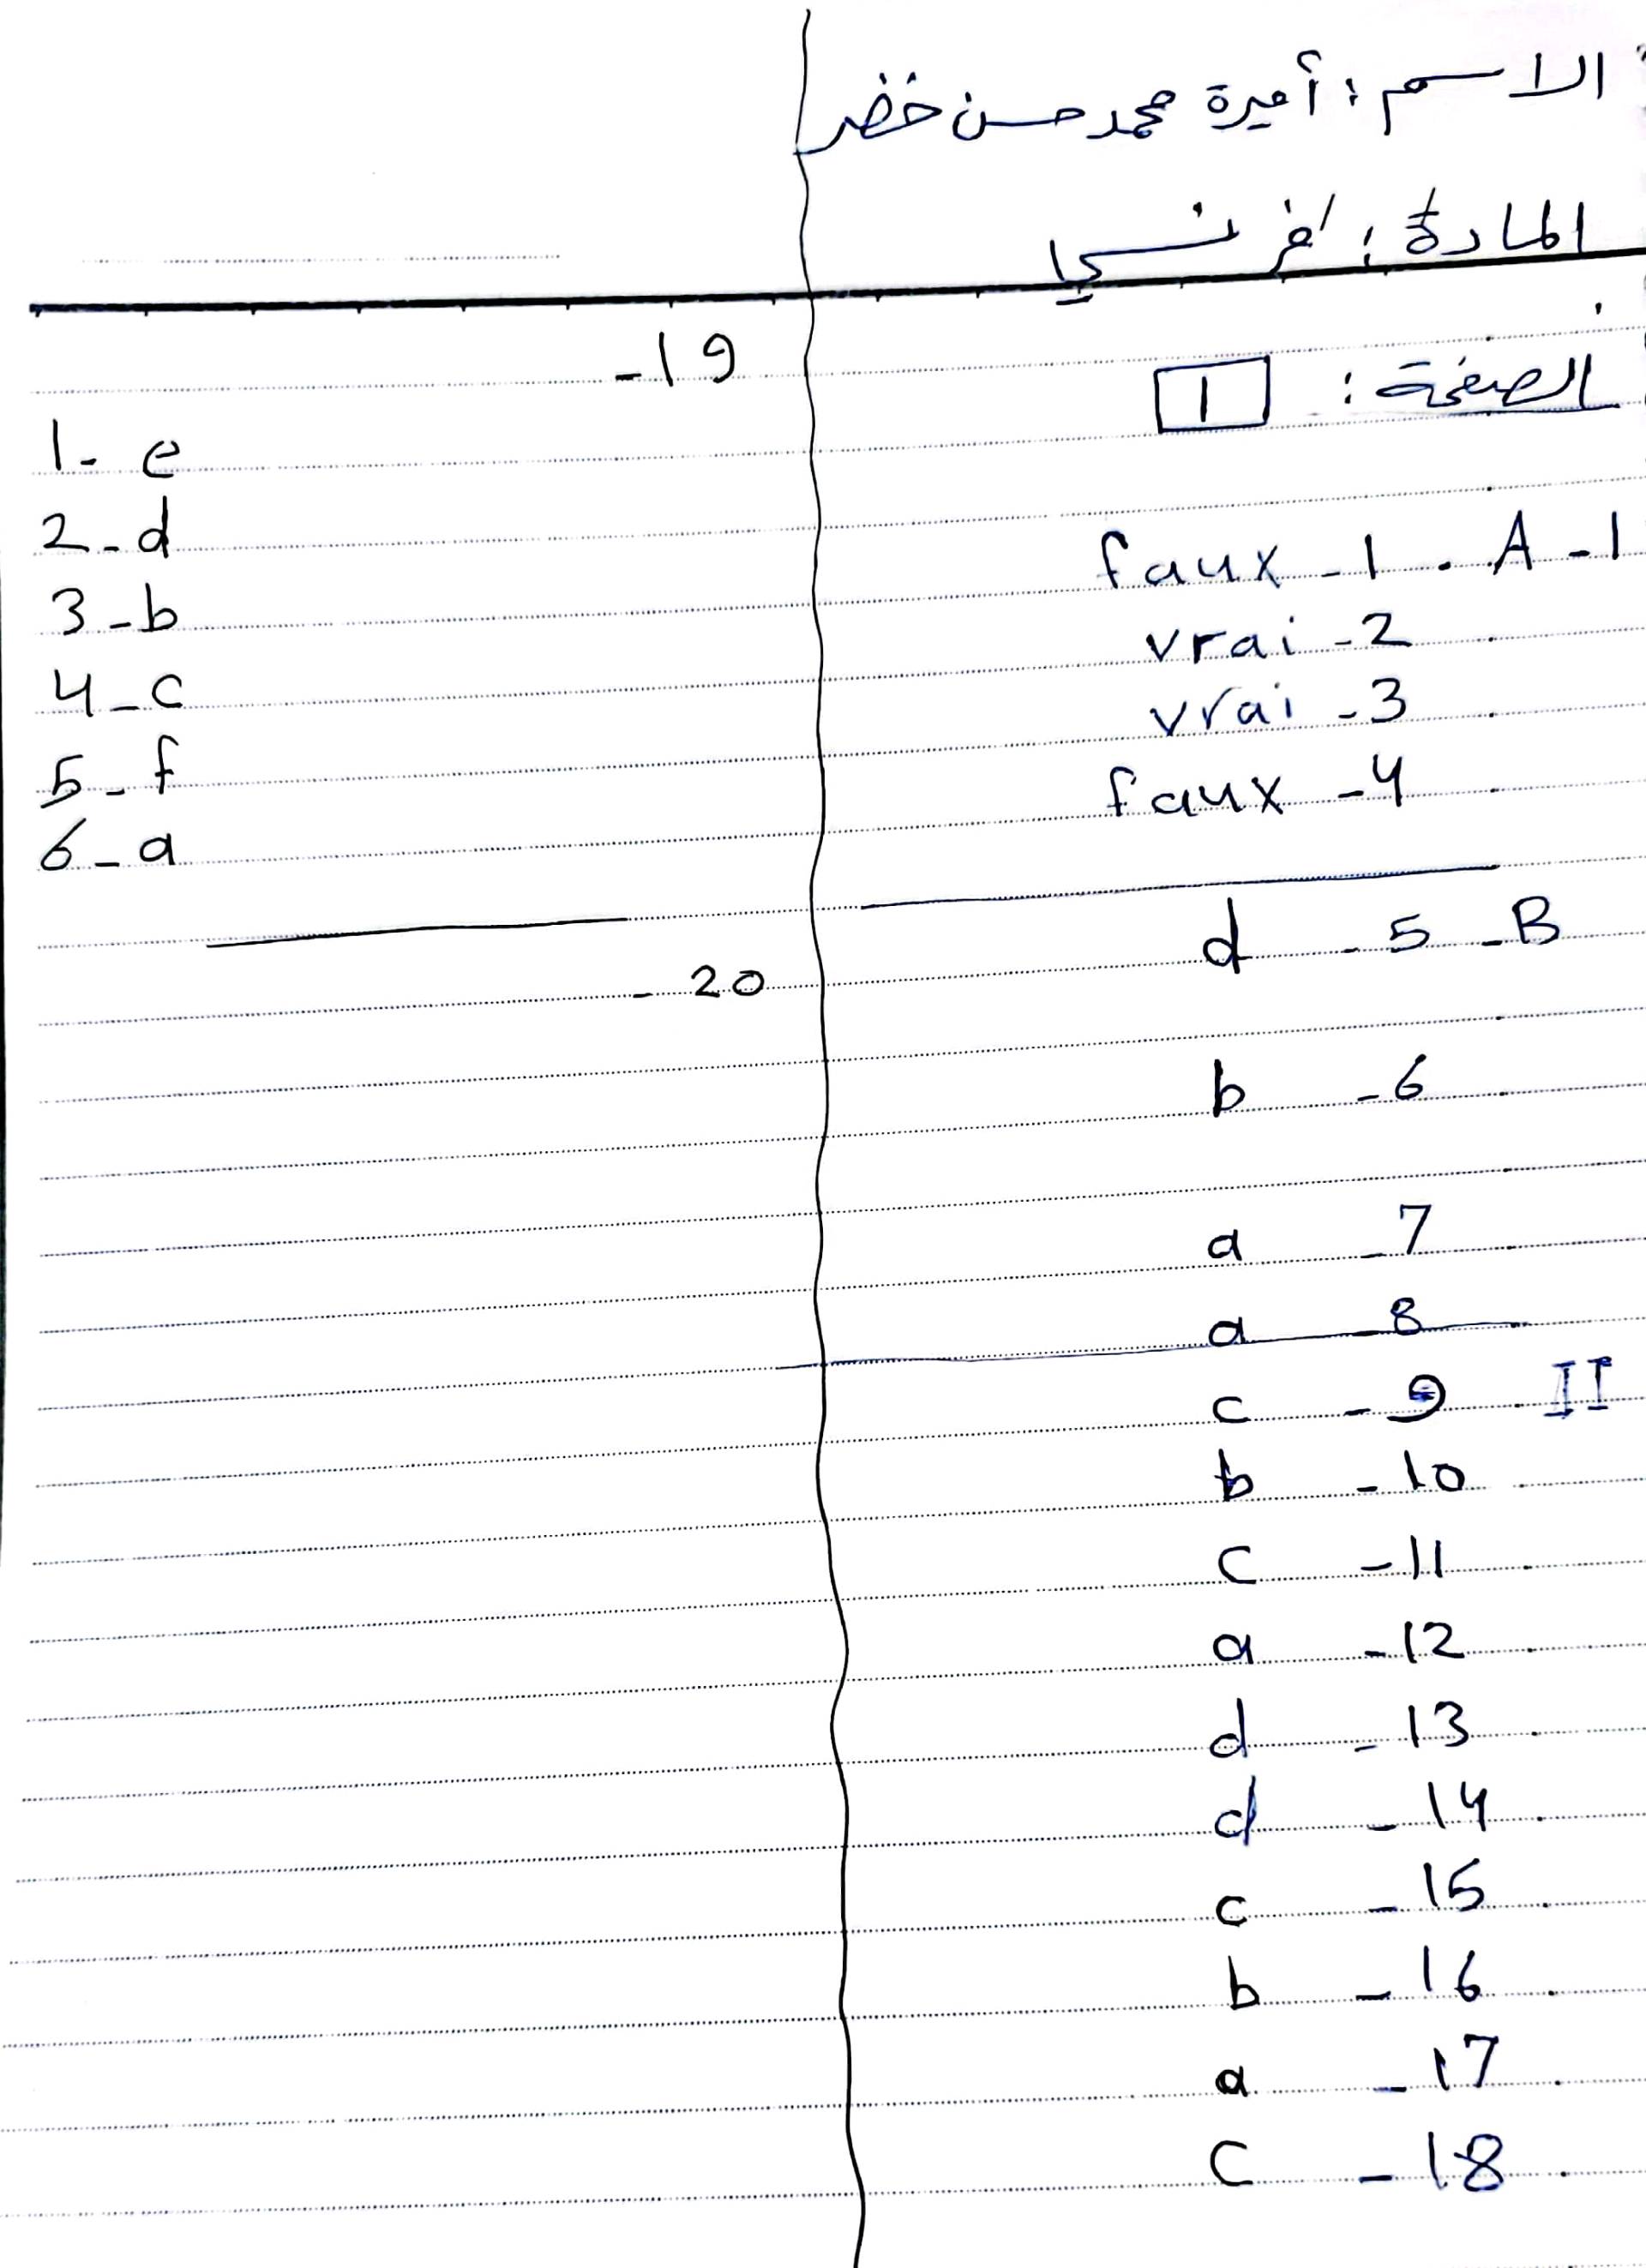 الاسم : أميرة محمد حسن خضر
المادة : فرنسي
الصفحة : 1
1 - A - 1 - faux
2 - vrai
3 - vrai
4 - faux
B - 5 - d
6 - b
7 - a
8 - a
II 9 - c
10 - b
11 - c
12 - a
13 - d
14 - d
15 - c
16 - b
17 - a
18 - c
19 -
1 - e
2 - d
3 - b
4 - c
5 - f
6 - a
20 -